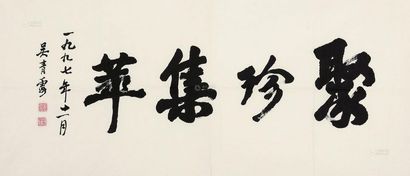 聚珍集萃
一九九七年十一月
吴青霞